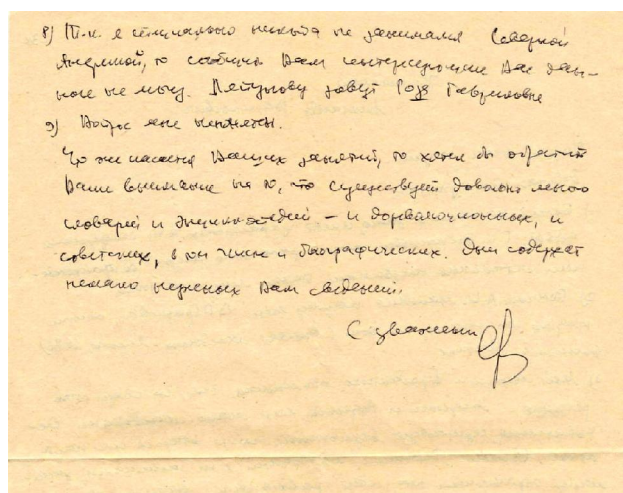 8) Т.к. я специально никогда не занимался Северной
Америкой, то сообщить Вам интересующие Вас дан-
ные не могу. зовут Гавриловна
9) Вопрос мне непонятен.
Что же касается Ваших занятий, то хотел бы обратить
Ваше внимание на то, что существует довольно много
словарей и энциклопедий – и дореволюционных, и
советских, в том числе и биографических. Они содержат
немало нужных Вам сведений.
С уважением